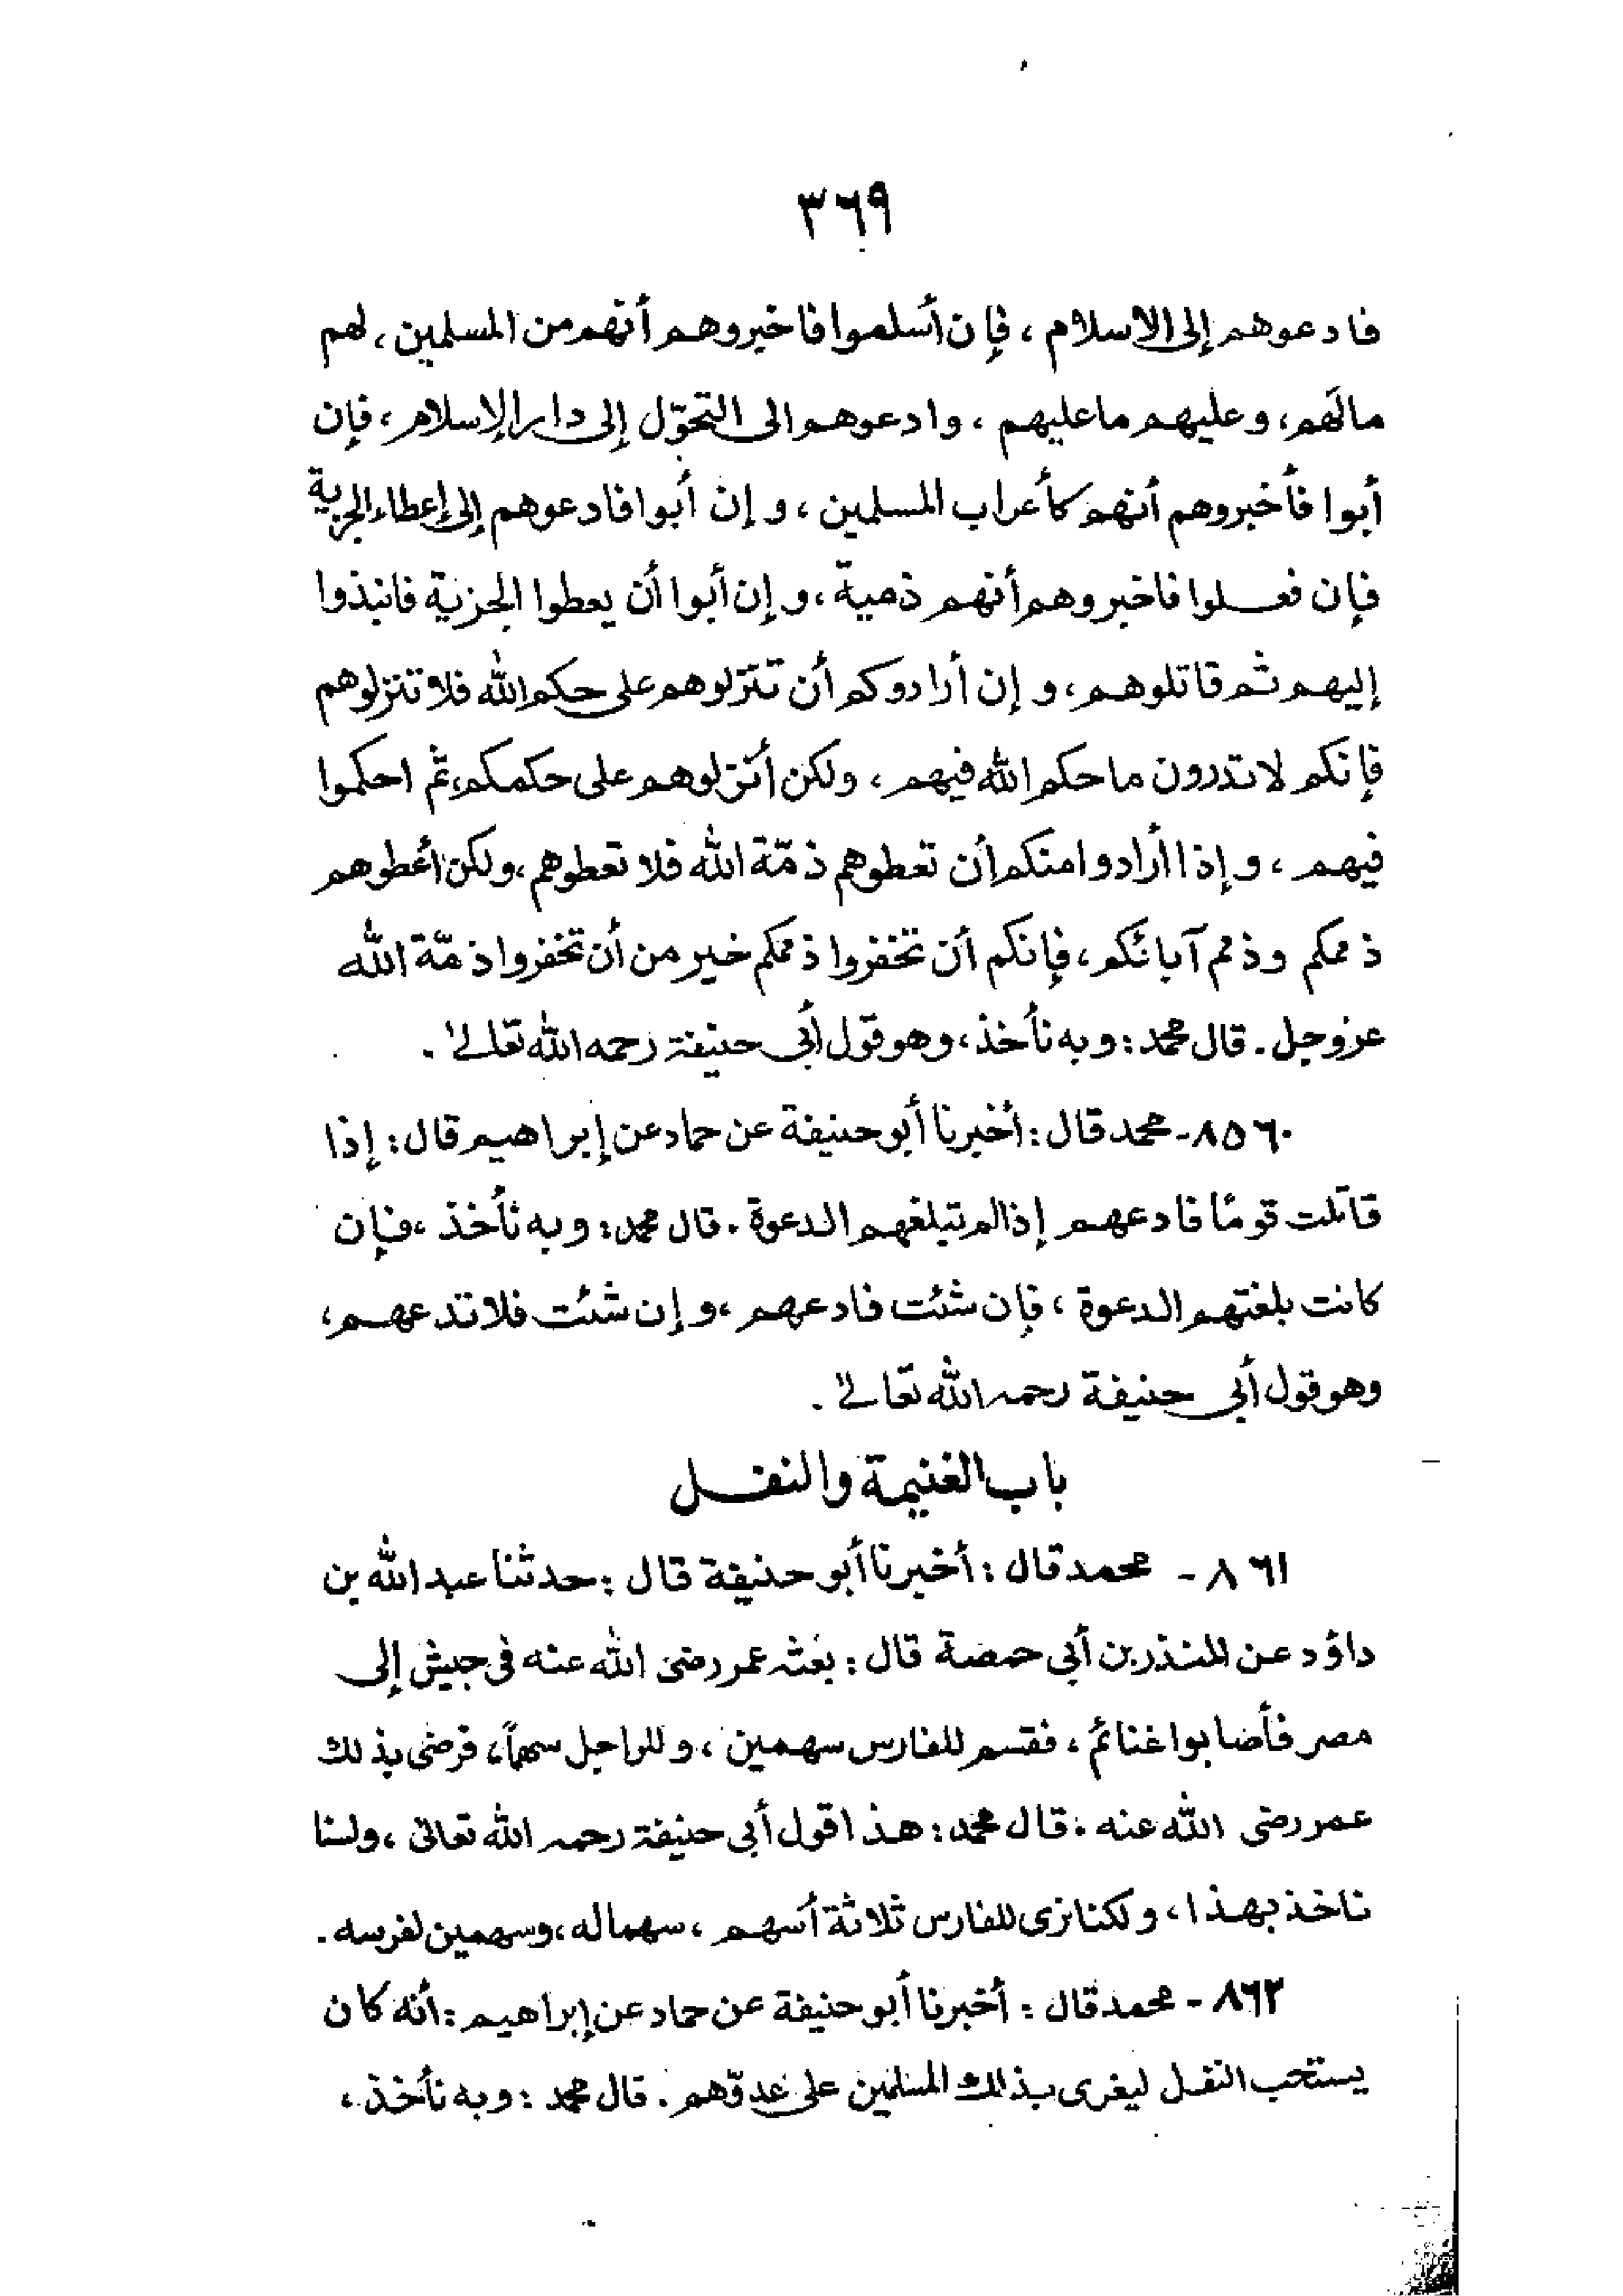 ٣٦٩
فادعوهم إلى الاسلام ، فإن أسلموا فاخبروهم أنهم من المسلمين ، لهم
مالهم ، وعليهم ماعليهم ، وادعوهم الى التحوّل إلى دار الإسلام ، فإن
أبوا فأخبروهم أنهم كأعراب المسلمين ، وإن أبوا فادعوهم إلى إعطاء الجزية
فإن فعلوا فاخبروهم أنهم ذمية ، وإن أبوا أن يعطوا الجزية فانبذوا
إليهم ثم قاتلوهم ، وإن أرادوكم أن تنزلوهم على حكم الله فلا تنزلوهم
فإنكم لا تدرون ما حكم الله فيهم ، ولكن أنزلوهم على حكمكم ، ثم احكموا
فيهم ، وإذا أرادوا منكم أن تعطوهم ذمّة الله فلا تعطوهم ، ولكن أعطوهم
ذممكم وذمم آبائكم ، فإنكم أن تخفروا ذممكم خير من أن تخفروا ذمّة الله
عز وجل . قال محمد : وبه نأخذ ، وهو قول أبي حنيفة رحمه الله تعالى .
٨٥٦٠ - محمد قال : أخبرنا أبو حنيفة عن حماد عن إبراهيم قال : إذا
قاتلت قومًا فادعهم إذا لم تبلغهم الدعوة . قال محمد : وبه نأخذ ، فإن
كانت بلغتهم الدعوة ، فإن شئت فادعهم ، وإن شئت فلا تدعهم ،
وهو قول أبي حنيفة رحمه الله تعالى .
باب الغنيمة والنفل
٨٦١ - محمد قال : أخبرنا أبو حنيفة قال : حدثنا عبد الله بن
داؤد عن المنذر بن أبي حمصة قال : بعثه عمر رضى الله عنه في جيش إلى
مصر فأصابوا غنائم ، فقسم للفارس سهمين ، وللراجل سهماً ، فرضى بذلك
عمر رضى الله عنه . قال محمد : هذا قول أبي حنيفة رحمه الله تعالى ، ولسنا
ناخذ بهذا ، ولكنا نرى للفارس ثلاثة أسهم ، سهما له ، وسهمين لفرسه .
٨٦٢ - محمد قال : أخبرنا أبو حنيفة عن حماد عن إبراهيم : أنه كان
يستحب النفل ليغرى بذلك المسلمين على عدوّهم . قال محمد : وبه نأخذ ،